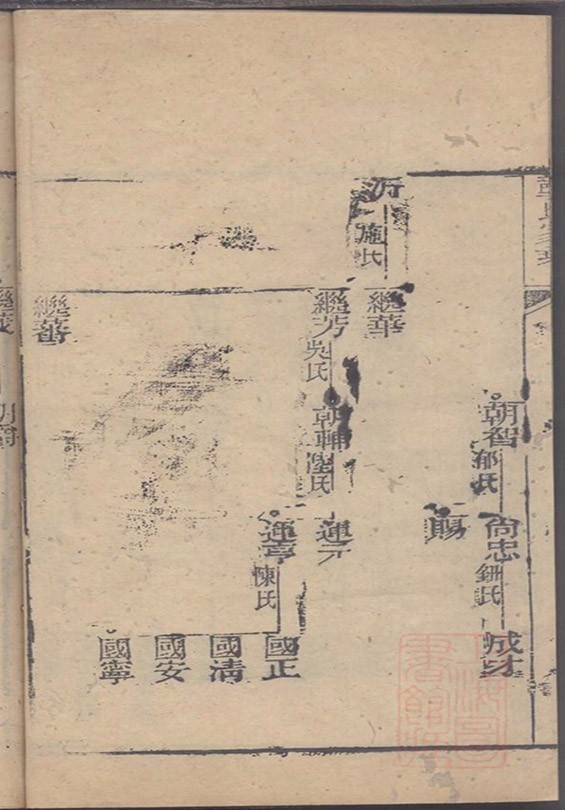 朝智
郁氏
尚忠
鈕氏
成才
賜
繼華
沂
施氏
繼芳
吳氏
朝輔
陸氏
運元
運亨
陳氏
國正
國清
國安
國寧
繼蕃